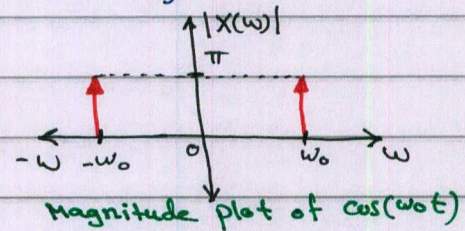 |X(ω)|
π
-ω -ω₀ 0 ω₀ ω
Magnitude plot of cos(ω₀t)